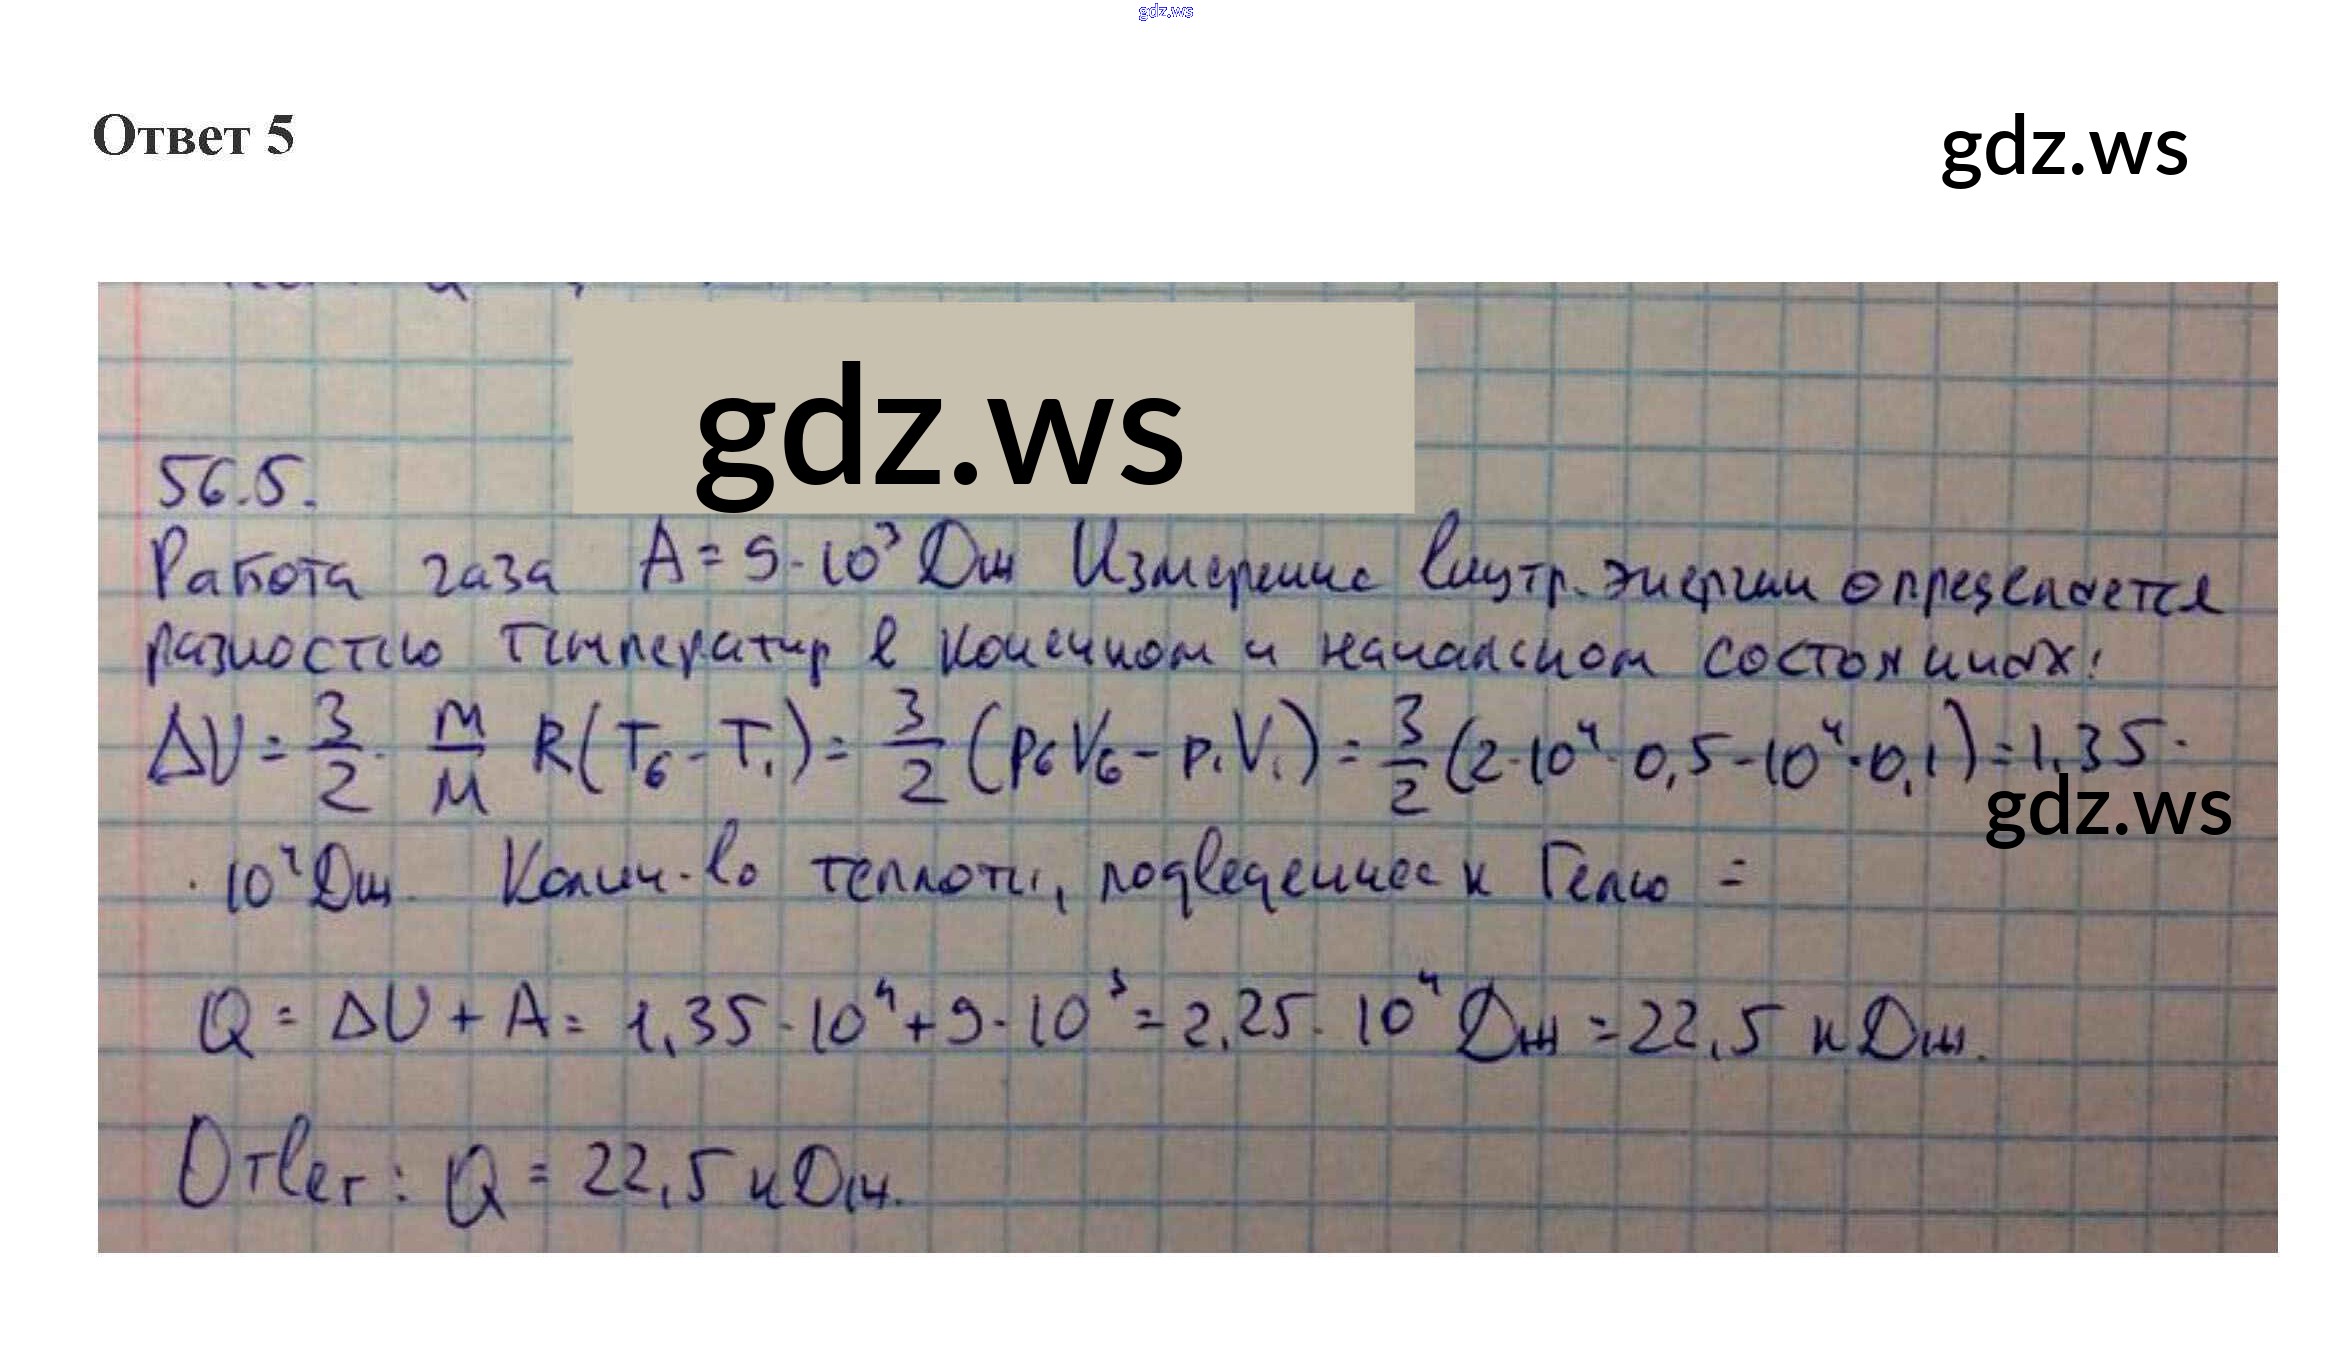 gdz.ws
Ответ 5
gdz.ws
gdz.ws
56.5.
Работа газа A = 9·10³ Дж Измерение внутр. энергии определяется
разностью температур в конечном и начальном состояниях:
ΔU = 3/2 · m/M R(T₆ - T₁) = 3/2 (p₆V₆ - p₁V₁) = 3/2 (2·10⁴·0,5 - 10⁴·0,1) = 1,35·
gdz.ws
·10⁴ Дж. Колич-во теплоты, подведенное к Гелию =
Q = ΔU + A = 1,35·10⁴ + 9·10³ = 2,25·10⁴ Дж = 22,5 кДж.
Ответ: Q = 22,5 кДж.